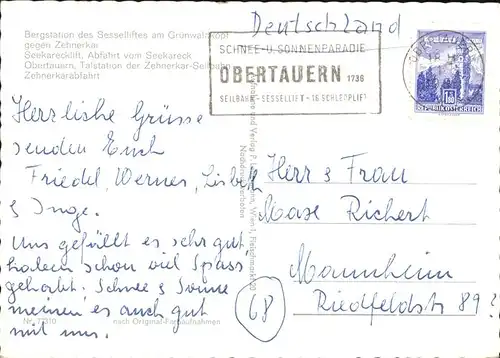 Deutschland
Bergstation des Sesselliftes am Grünwaldkopf
gegen Zehnerkar
Seekarecklift, Abfahrt vom Seekareck
Obertauern, Talstation der Zehnerkar-Seilbahn
Zehnerkarabfahrt
SCHNEE-U. SONNENPARADIES
OBERTAUERN 1738
SEILBAHN-SESSELLIFT-16 SCHLEPPLIFT
OBERTAUERN
REPUBLIK ÖSTERREICH
Herzliche Grüsse
senden Euch
Friedel, Werner, Lisbeth
& Inge.
Uns gefällt es sehr gut
haben schon viel Spass
gehabt. Schnee & Sonne
meinen es auch gut
mit uns.
Herr & Frau
Max Richert
Mannheim
Riedfeldstr 89?
68
Nachdruck verboten
nach Original-Farbaufnahmen